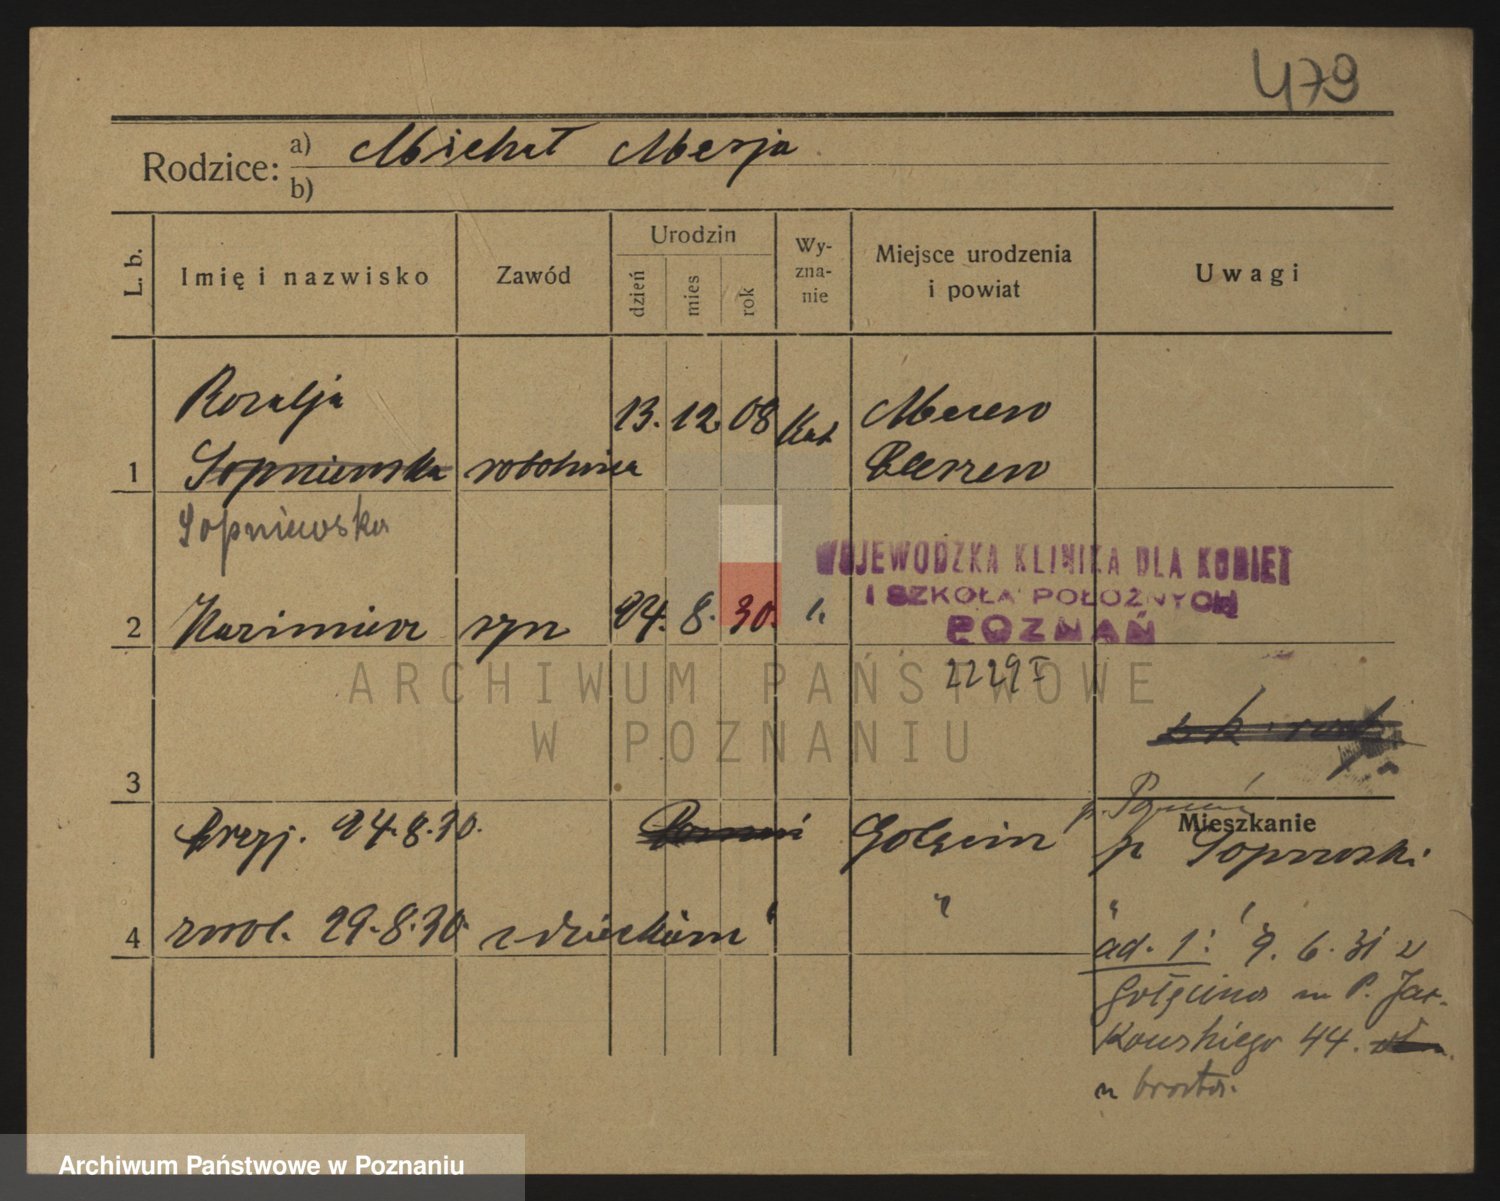 479
Rodzice: a) Michał
b)
L. b. Imię i nazwisko Zawód Urodzin dzień mies rok Wy-zna-nie Miejsce urodzenia i powiat Uwagi
Rozalja 13. 12. 08 Kat
1 Sopniewska robotnica
Sopniewska
WOJEWODZKA KLINIKA DLA KOBIET
I SZKOŁA POŁOŻNYCH
POZNAŃ
2 Kazimierz syn 24. 8. 30.
2229
ARCHIWUM PAŃSTWOWE
W POZNANIU
3
24.8.30. Golęcin p. Poznań
Mieszkanie
p
4 zwol. 29.8.30. z dzieckiem " "
ad. 1: 9. 6. 31 z
Gołęcina P. Jac-
kowskiego 44.
u brata.
Archiwum Państwowe w Poznaniu